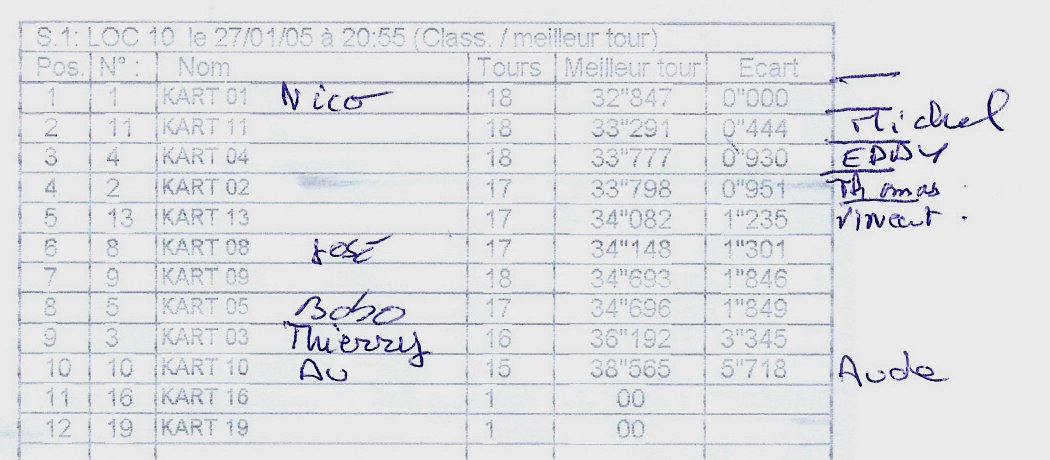 S.1: LOC 10 le 27/01/05 à 20:55 (Class. / meilleur tour)
Pos. N° : Nom Tours Meilleur tour Ecart
1 1 KART 01 Nico 18 32"847 0"000
2 11 KART 11 18 33"291 0"444 Michel
3 4 KART 04 18 33"777 0"930 EDDY
4 2 KART 02 17 33"798 0"951 Thomas
5 13 KART 13 17 34"082 1"235 Vincent.
6 8 KART 08 José 17 34"148 1"301
7 9 KART 09 18 34"693 1"846
8 5 KART 05 Bobo 17 34"696 1"849
9 3 KART 03 Thierry 16 36"192 3"345
10 10 KART 10 Au 15 38"565 5"718 Aude
11 16 KART 16 1 00
12 19 KART 19 1 00